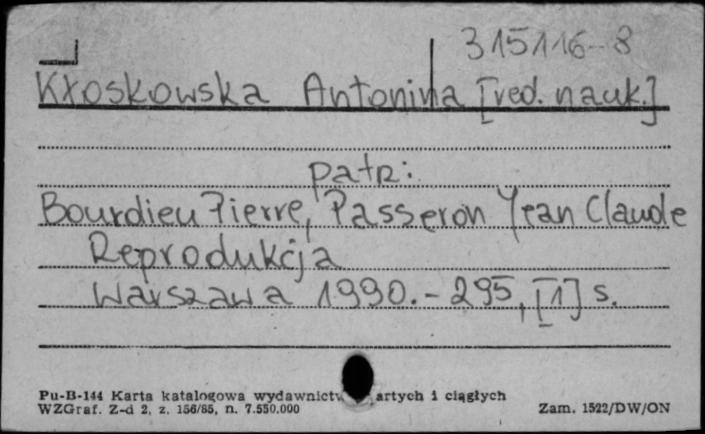 315116-8
Kłoskowska Antonina [red. nauk.]
patr:
Bourdieu Pierre, Passeron Jean Claude
Reprodukcja
Warszawa 1990. - 295, [1] s.
Pu-B-144 Karta katalogowa wydawnictw artych i ciągłych
WZGraf. Z-d 2, z. 156/85, n. 7.550.000 Zam. 1522/DW/ON